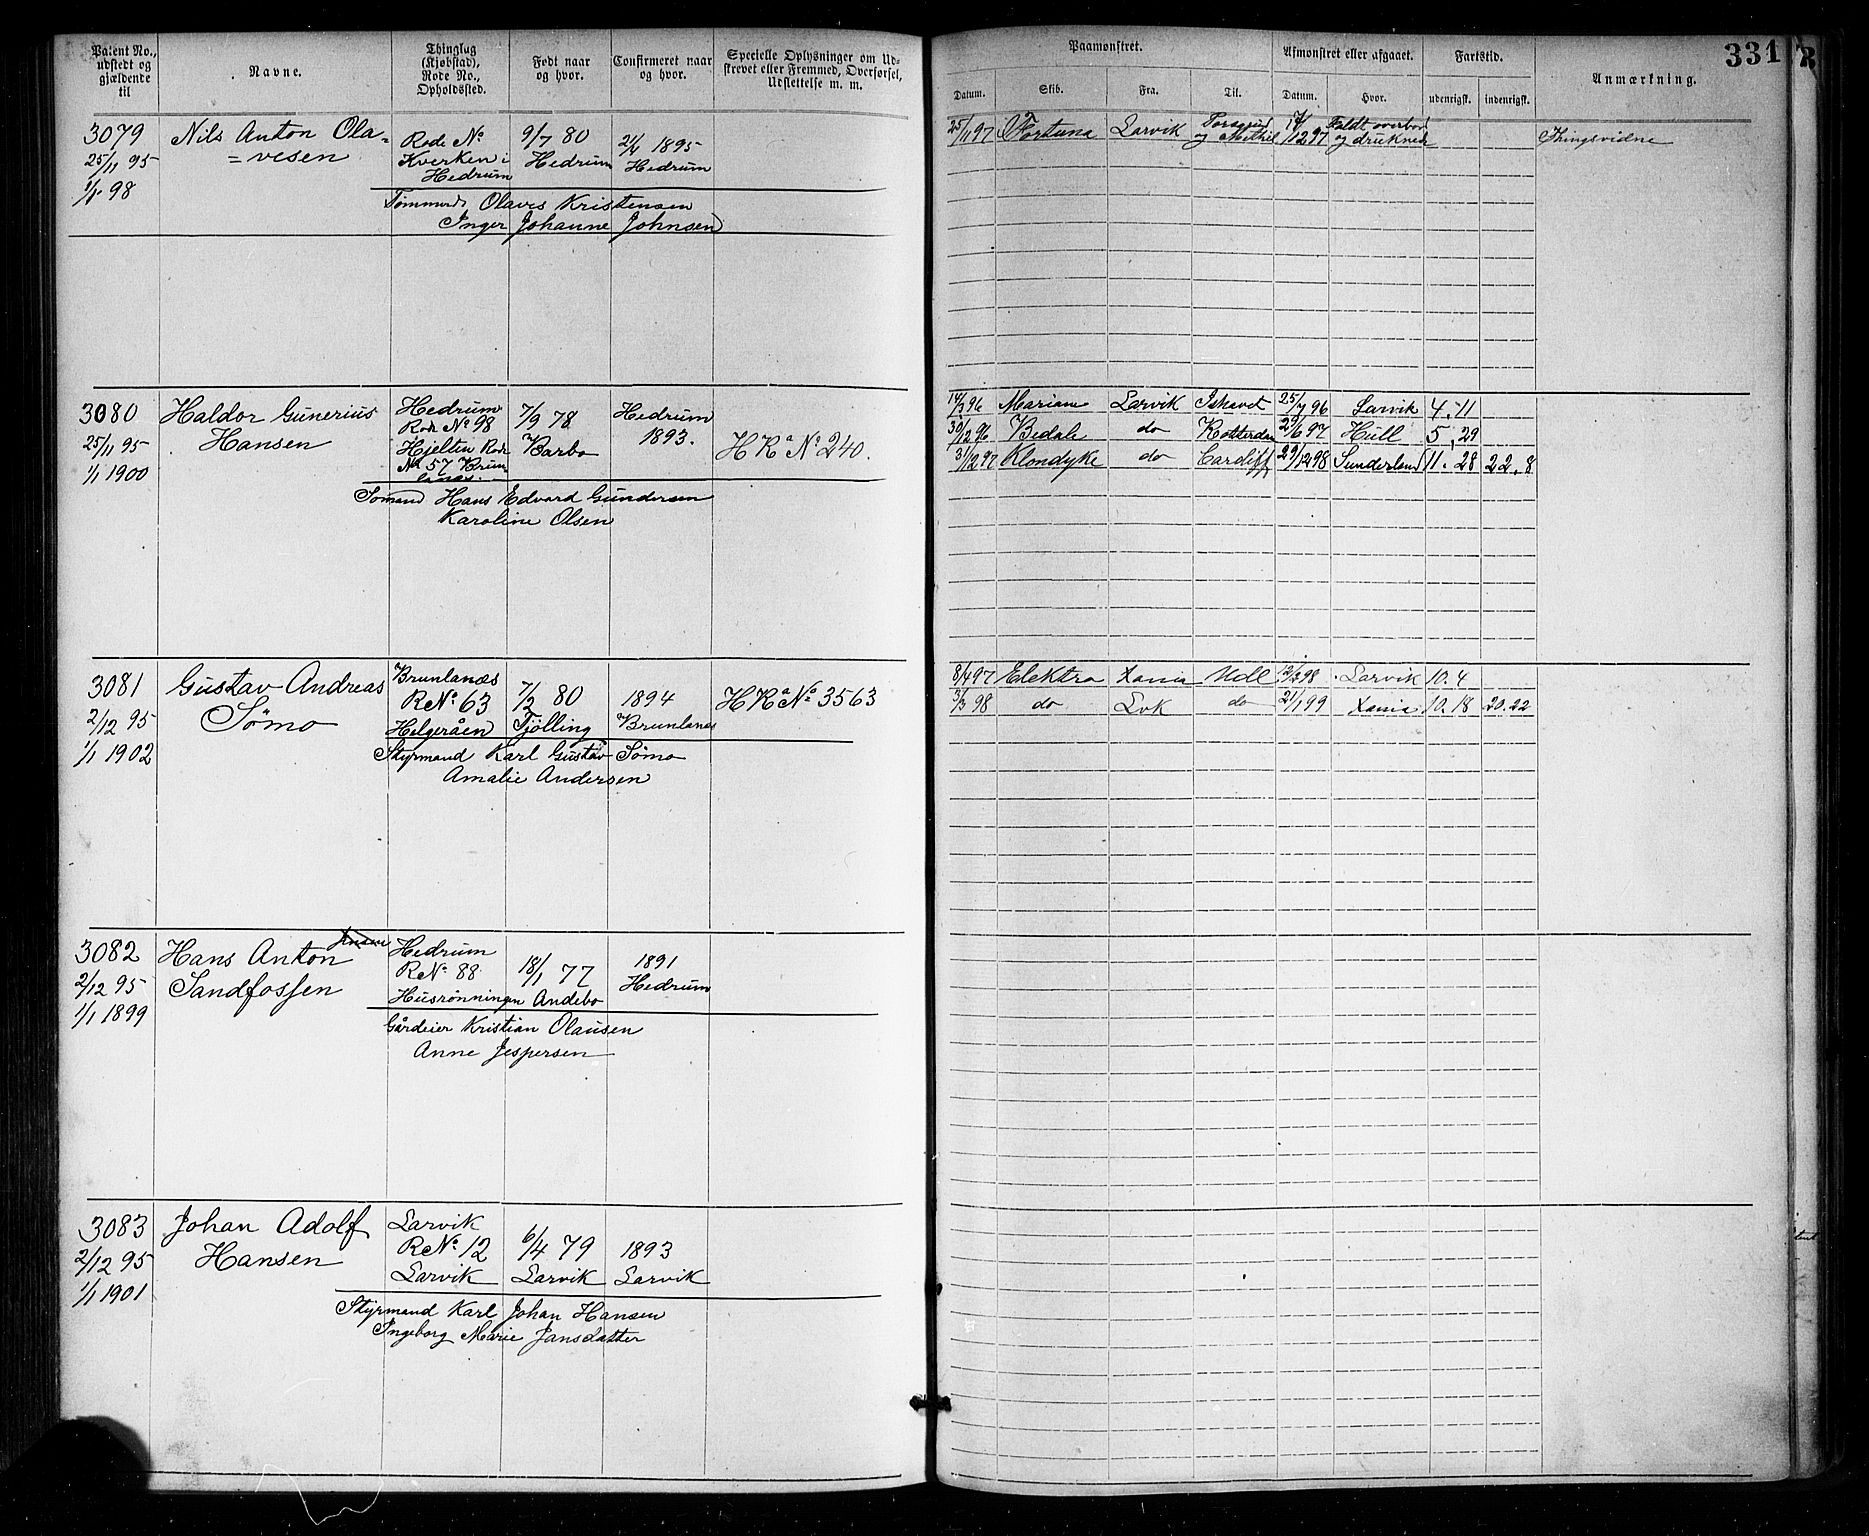 Patent No., udstedt og gjældende til
Navne.
Thinglag (Kjøbstad), Rode No., Opholdssted.
Født naar og hvor.
Confirmeret naar og hvor.
Specielle Oplysninger om Udskrevet eller Fremmed, Overførsel, Udslettelse m. m.
Paamønstret.
Afmønstret eller afgaaet.
Fartstid.
Anmærkning.
331
Datum.
Skib.
Fra.
Til.
Datum.
Hvor.
udenrigsk.
indenrigsk.
3079
25/11 95
1/1 98
Nils Anton Ola=
=vesen
Rode No
Kverken i
Hedrum
9/7 80
Hedrum
1895
Hedrum
Olaves Kristensen
Inger Johanne Johnsen
25/11 97 Fortuna Larvik
og 12 97 Faldt overbord
og druknede
Thingsvidne
3080
25/11 95
1/1 1900
Haldor Gunerius
Hansen
Hedrum
Rode No 98
Hjelten Rode
No 57 Brun
lanæs.
7/9 78
Barbo
Hedrum
1893.
H Ra No 240.
Sømand Hans Edvard Gundersen
Karoline Olsen
14/3 96 Mariane Larvik Ishavet 25/7 96 Larvik 4. 11
30/12 96 Bedale do Rotterdam 6 97 Hull 5, 29
3/12 97 Klondyke do Cardiff 29/12 98 Sunderland 11. 28 22. 8
3081
2/12 95
1/1 1902
Gustav Andreas
Sömo
Brunlanæs
R No 63
Helgeråen
7/2 80
Tjölling
1894
Brunlanæs
H Ra No 3563
Styrmand Karl Gustav Sömo
Amalie Andersen
8/4 97 Elektra Xania Udl 12/2 98 Larvik 10. 4
3/3 98 do Lvk do 21/1 99 Xania 10. 18 20. 22
3082
2/12 95
1/1 1899
Hans Anton
Sandfossen
Hedrum
R No 88
Husrønningen
18/1 77
Andebo
1891
Hedrum
Gårdeier Kristian Olausen
Anne Jespersen
3083
2/12 95
1/1 1901
Johan Adolf
Hansen
Larvik
R No 12
Larvik
6/4 79
Larvik
1893
Larvik
Styrmand Karl Johan Hansen
Ingeborg Marie Jansdatter